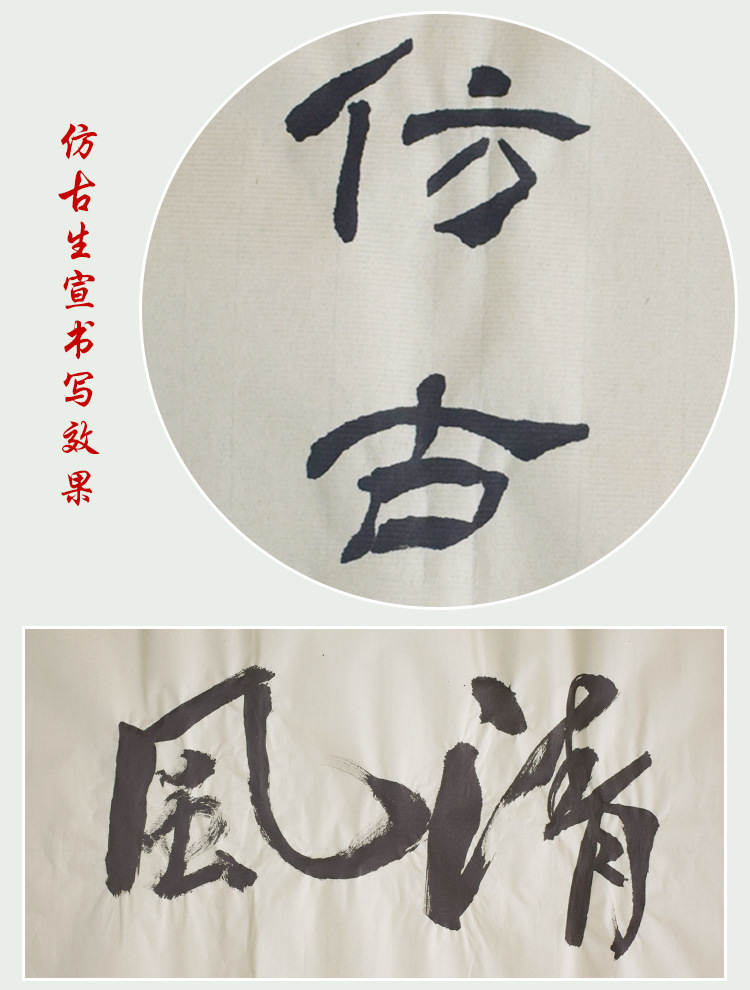 仿古生宣书写效果
仿古
清風